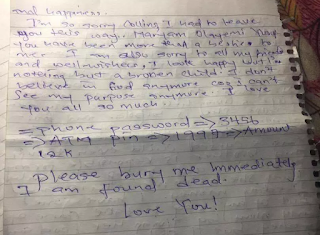 and happiness.
I'm so sorry Mummy I had to leave
you this way. Maryam Olayemi
You have been more than a bestie
I am also sorry to all my friends
and well-wishers. I look happy but I'm
nothing but a broken child. I don't
believe in God anymore cos I can't
see my purpose anymore. I love
You all so much.
=> phone password => 3456
=> ATM pin => 1999 => Amount
12k
Please bury me immediately
I am found dead.
Love You!